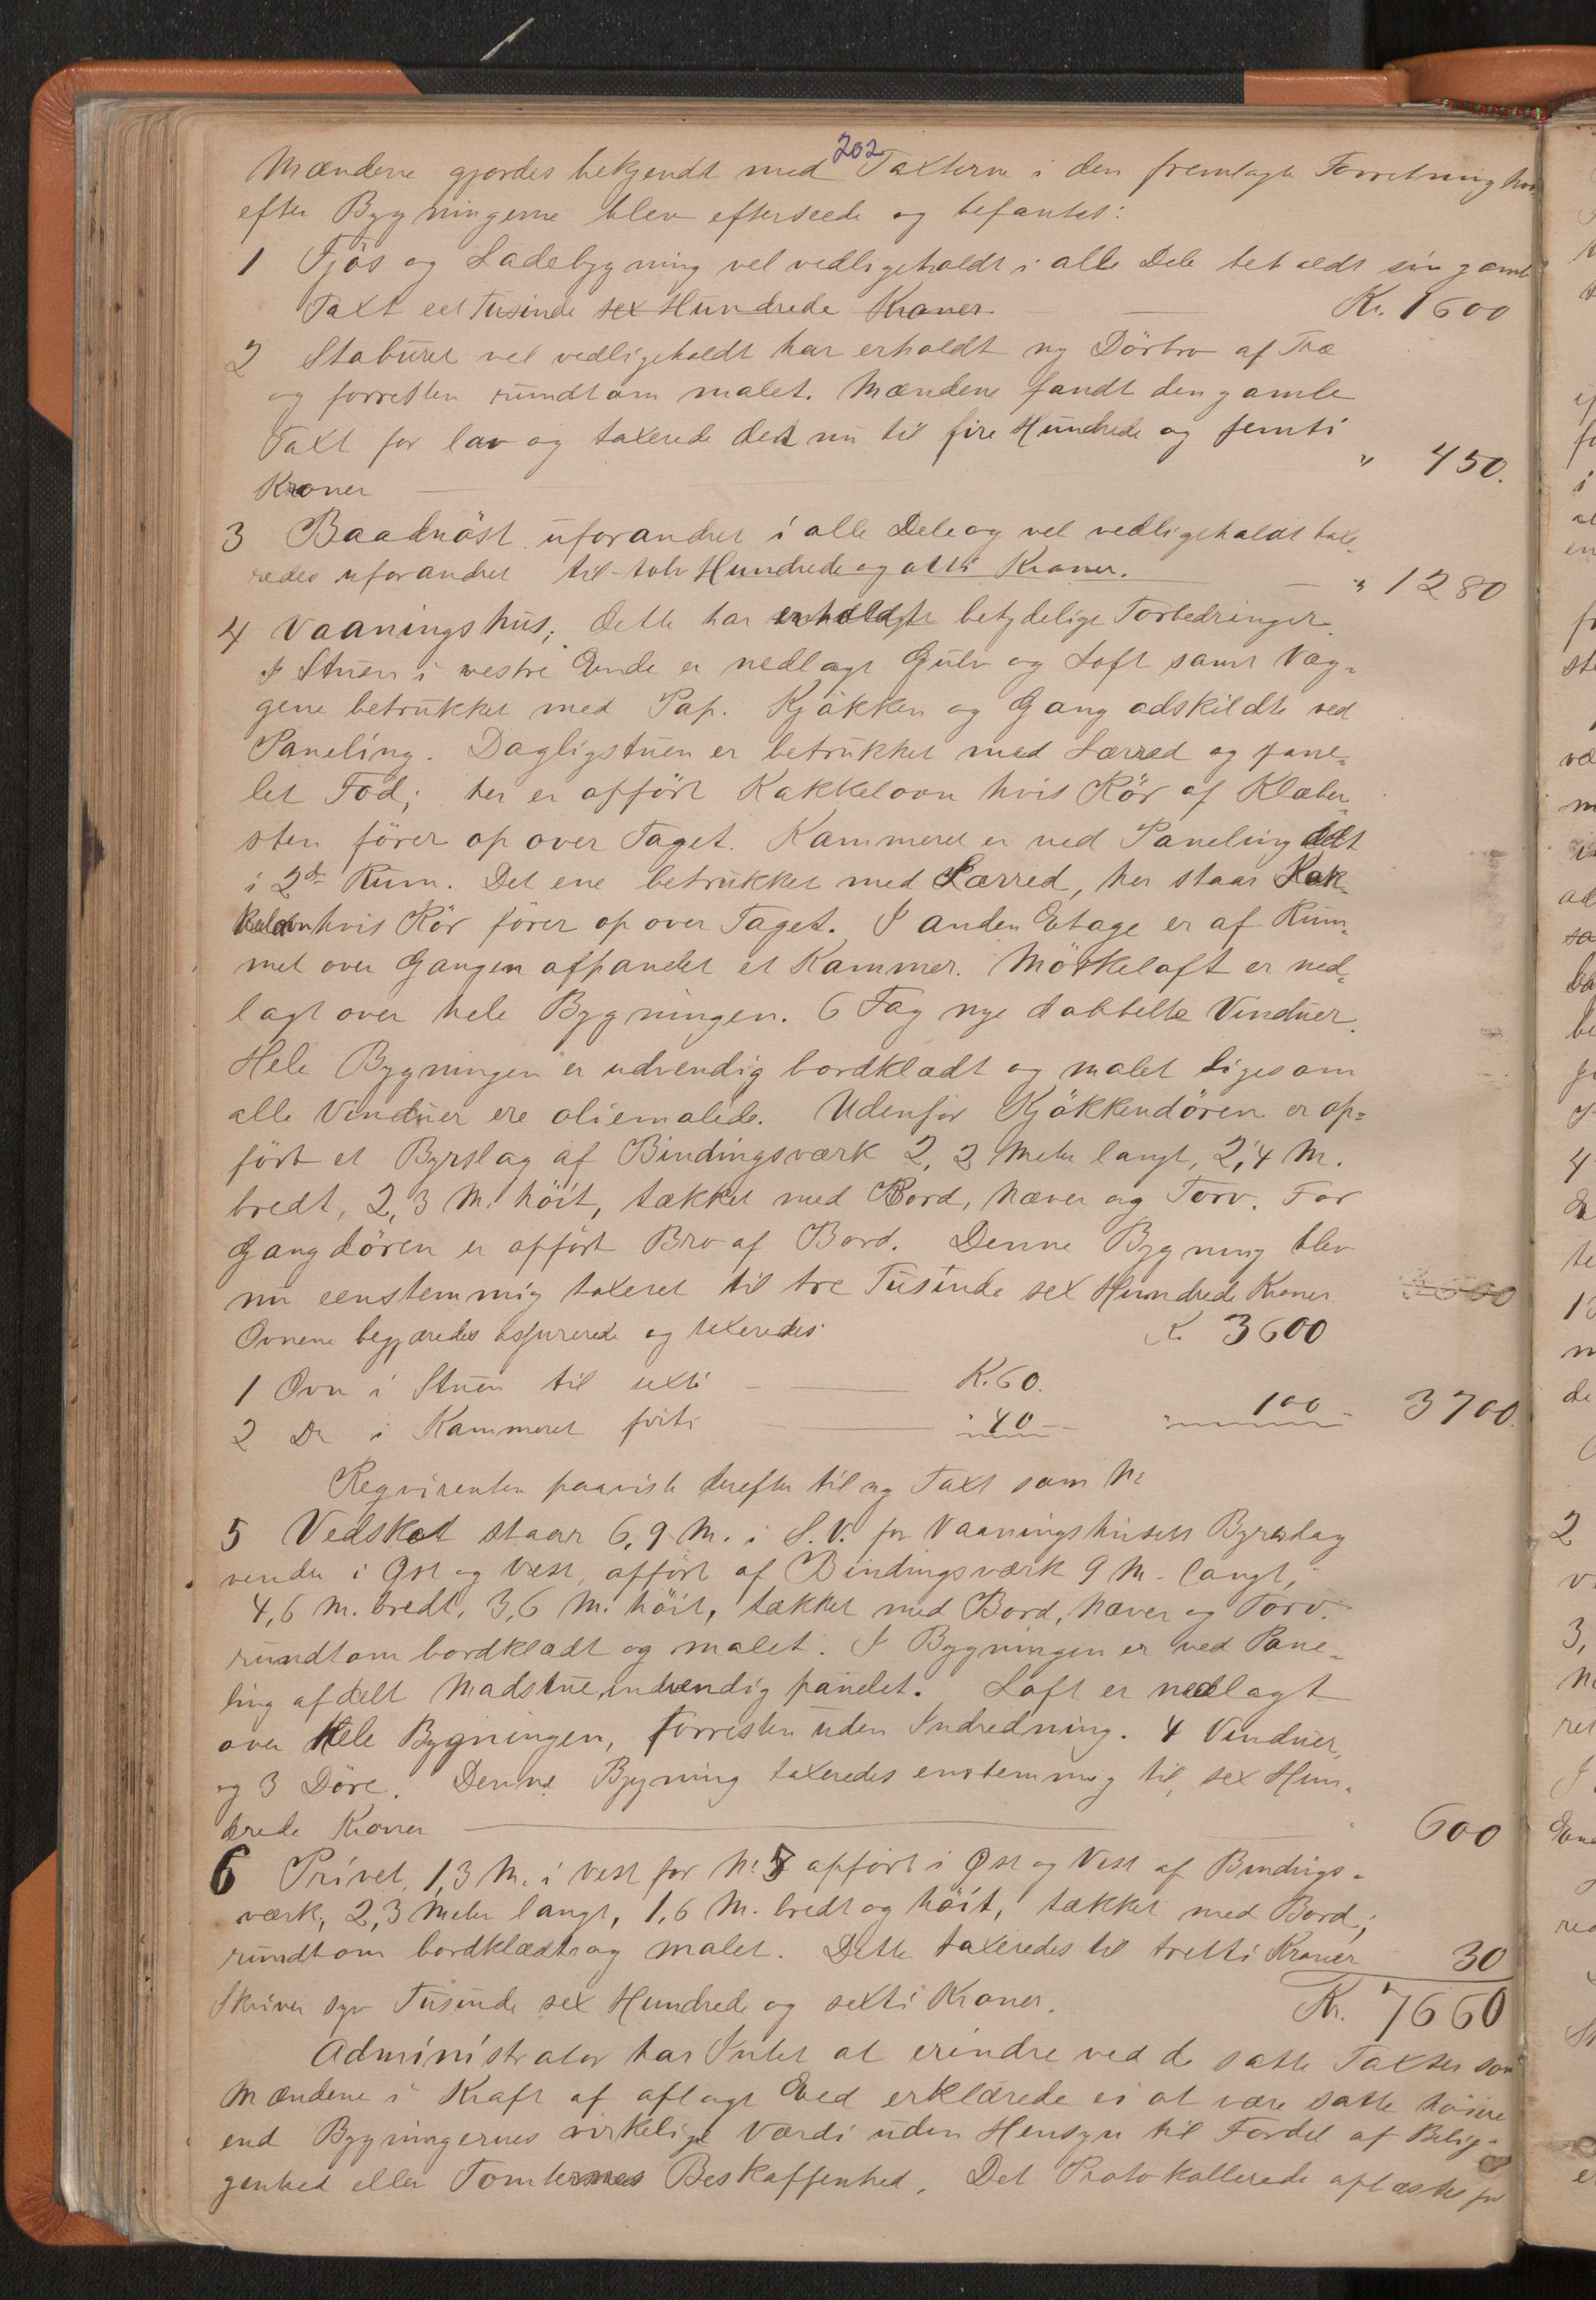 202
Mændene gjordes bekjendt med Taxterne i den fremlagte Forretning hvor
efter Bygningerne blev efterseede og befantes:
1 Fjøs og Ladebygning vel vedligeholdt i alle Dele beholdt sin gamle
Taxt eet Tusinde sex Hundrede Kroner. Kr. 1600
2 Staburet vel vedligeholdt har erholdt ny Dörbro af Træ
og forresten rundtom malet. Mændene fandt den gamle
Taxt for lav og taxerede det nu til fire Hundrede og femti
Kroner " 450.
3 Baadnöst uforandret i alle Dele og vel vedligeholdt taxe-
redes uforandret til tolv Hundrede og otti Kroner. " 1280
4 Vaaningshus; dette har erholdt betydelige Forbedringer.
I Stuen i vestre Ende er nedlagt Gulv og Loft samt Væg-
gene betrukket med Pap. Kjökken og Gang adskildte ved
Paneling. Dagligstuen er betrukket med Lærred og pane-
let Fod; her er opfört Kakkelovn hvis Rör af Klæber-
sten förer op over Taget. Kammeret er ved Paneling delt
i 2de Rum. Det ene betrukket med Lærred, her staar Kak-
kelovn hvis Rör förer op over Taget. I anden Etage er af Rum-
met over Gangen afpanelet et Kammer. Mörkeloft er ned-
lagt over hele Bygningen. 6 Fag nye dobbelte Vinduer.
Hele Bygningen er udvendig bordklædt og malet ligesom
alle Vinduer ere oliemalede. Udenfor Kjökkendören er op-
fört et Byrslag af Bindingsværk 2,2 Meter langt, 2,4 M.
bredt, 2,3 M. höit, tækket med Bord, Næver og Torv. For
Gangdören er opfört Bro af Bord. Denne Bygning blev
nu eenstemmig taxeret til tre Tusinde sex Hundrede Kroner. 3600
Ovnene begjæredes assurerede og taxeredes K. 3600
1 Ovn i Stuen til sexti K. 60.
2 Do i Kammeret förti " 40 " 100 3700.
Reqvirenten paaviste derefter til ny Taxt som No
5 Vedskot staar 6,9 M. i S.V. for Vaaningshusets Byrslag
vender i Øst og Vest, opfört af Bindingsværk 9 M. langt,
4,6 M. bredt, 3,6 M. höit, tækket med Bord, Næver og Torv.
rundtom bordklædt og malet. I Bygningen er ved Pane-
ling afdelt Madstue, indvendig panelet. Loft er nedlagt
over hele Bygningen, forresten uden Indredning. 4 Vinduer
og 3 Döre. Denne Bygning taxeredes enstemmig til sex Hun-
drede Kroner 600
6 Privet, 1,3 M. i Vest for No 5 opfört i Øst og Vest af Bindings-
værk, 2,3 Meter langt, 1,6 M. bredt og höit, tækket med Bord;
rundtom bordklædt og malet. Dette taxeredes til tretti Kroner 30
Skriver syv Tusinde sex Hundrede og sexti Kroner. Kr. 7660
Administrator har Intet at erindre ved de satte Taxter som
Mændene i Kraft af aflagt Eed erklærede ei at være satte höiere
end Bygningernes virkelige Værdi uden Hensyn til Fordel af Belig-
genhed eller Tomternes Beskaffenhed. Det Protokollerede oplæstes for